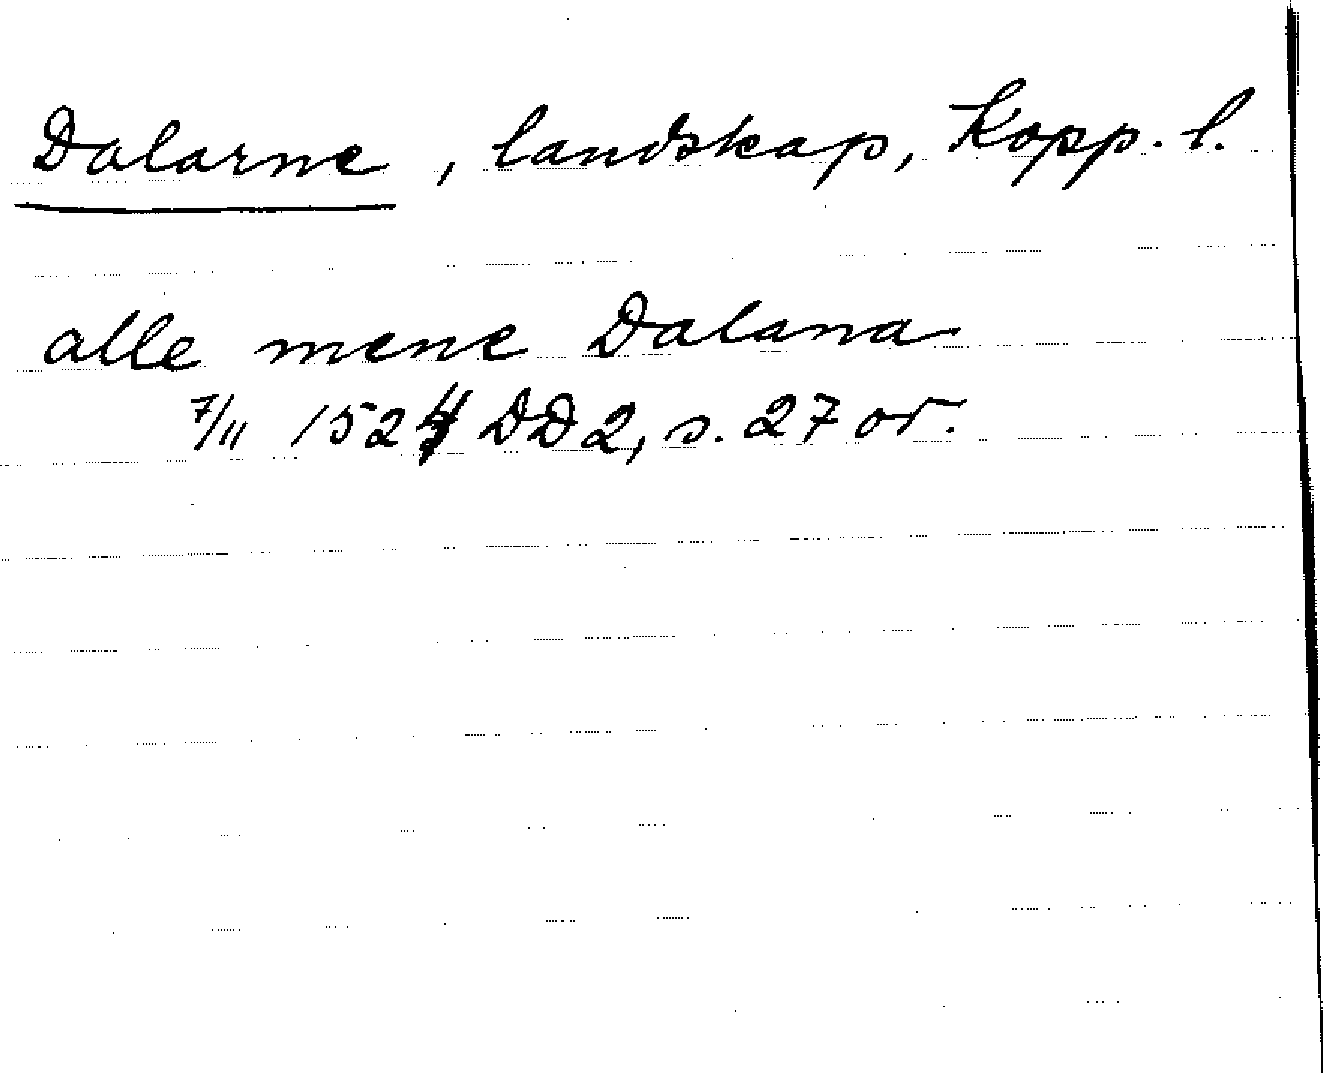 Dalarne, landskap, Kopp. l.
alle mene Dalana
7/11 1524 DD2, s. 27 or.